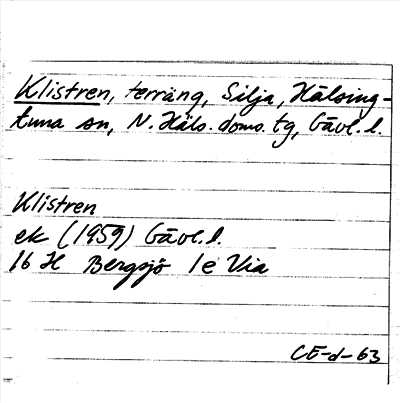 Klistren, terräng, Silja, Hälsing-
tuna sn, N. Häls. doms. tg, Gävl. l.
Klistren
ek (1959) Gävl. l.
16 H Bergsjö 1e Via
CE-d-63